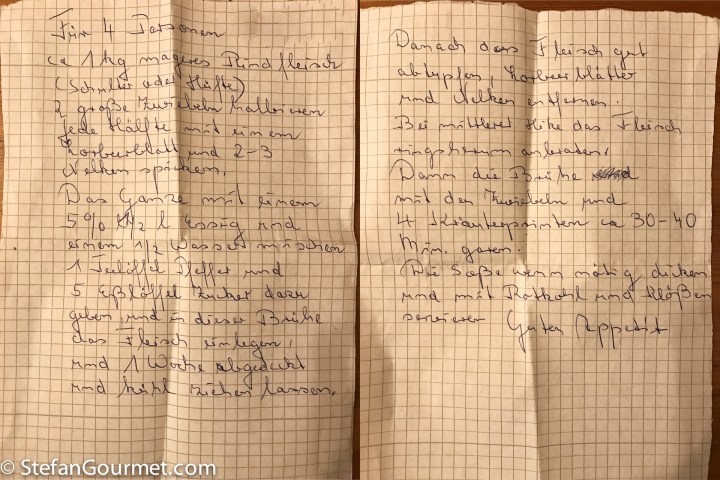 Für 4 Personen
ca 1 kg mageres Rindfleisch
(Schulter oder Hüfte)
2 große Zwiebeln halbieren
jede Hälfte mit einem
Lorbeerblatt und 2-3
Nelken spicken.
Das Ganze mit einem
5% 1/2 l Essig und
einem 1/2 Wasser mischen
1 Teelöffel Pfeffer und
5 Eßlöffel Zucker dazu
geben und in dieser Brühe
das Fleisch einlegen,
und 1 Woche abgedeckt
und kühl ziehen lassen.
Danach das Fleisch gut
abtupfen, Lorbeerblätter
und Nelken entfernen.
Bei mittlerer Hitze das Fleisch
ringsherum anbraten.
Dann die Brühe
mit den Zwiebeln und
4 Kräuterprinten ca 30-40
Min. garen.
Die Soße wenn nötig dicken
und mit Rotkohl und Klößen
servieren Guten Appetit
© StefanGourmet.com